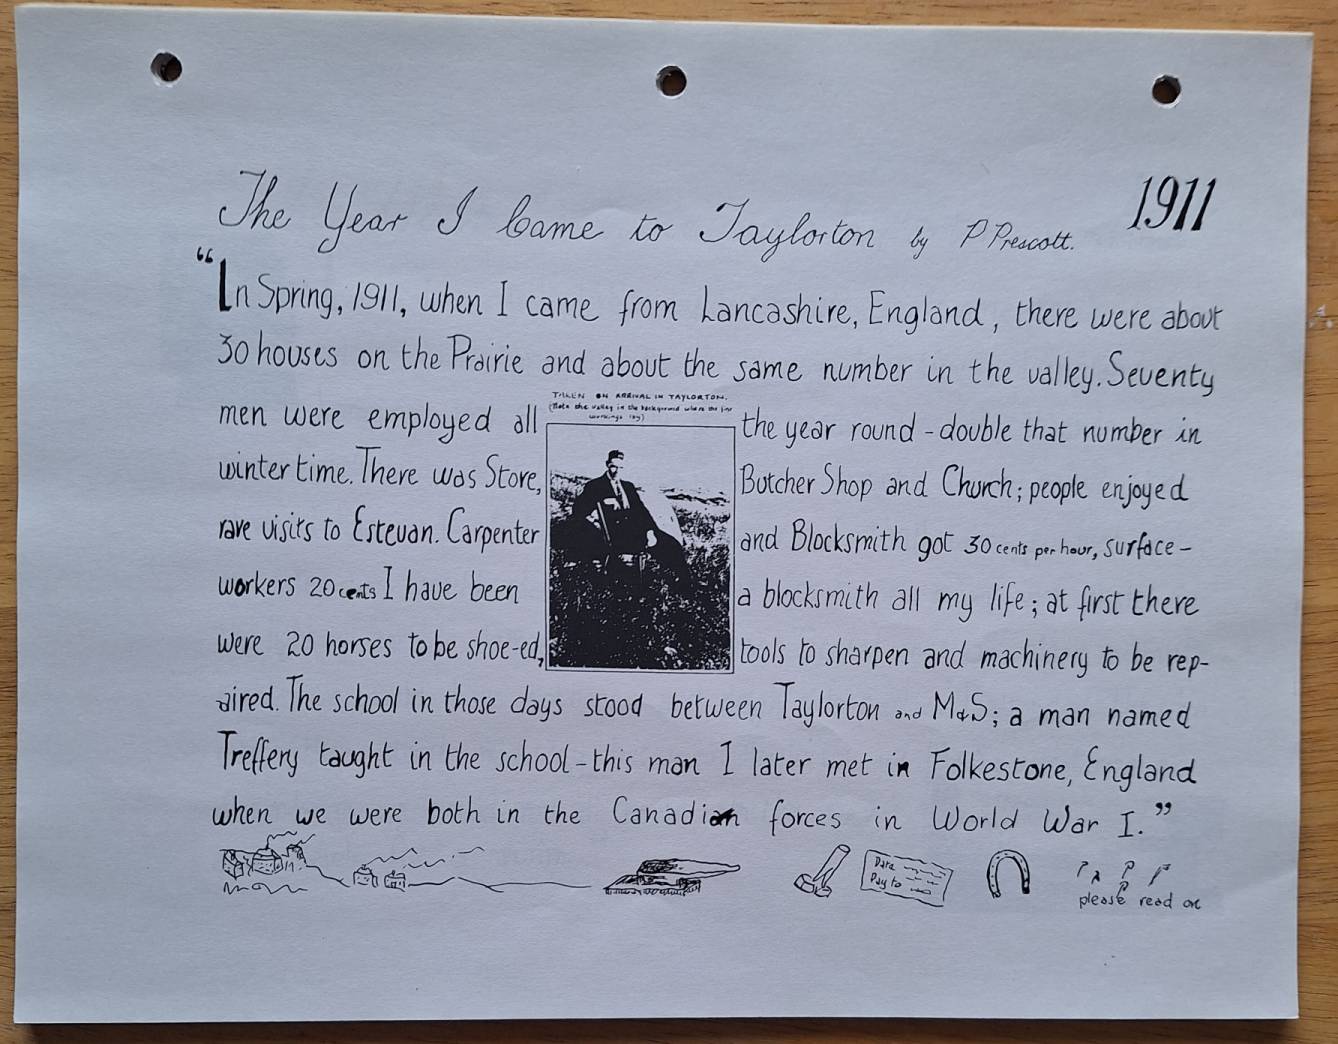 The Year I Came to Taylorton by P Prescott. 1911
"In Spring, 1911, when I came from Lancashire, England, there were about
30 houses on the Prairie and about the same number in the valley. Seventy
TAKEN ON ARRIVAL IN TAYLORTON.
(Note the valley in the background where the first
workings lay)
men were employed all the year round - double that number in
winter time. There was Store, Butcher Shop and Church; people enjoyed
rare visits to Estevan. Carpenter and Blocksmith got 30 cents per hour, surface-
workers 20 cents I have been a blocksmith all my life; at first there
were 20 horses to be shoe-ed, tools to sharpen and machinery to be rep-
aired. The school in those days stood between Taylorton and M&S; a man named
Treffery taught in the school - this man I later met in Folkestone, England
when we were both in the Canadian forces in World War I."
Date
Pay to
please read on